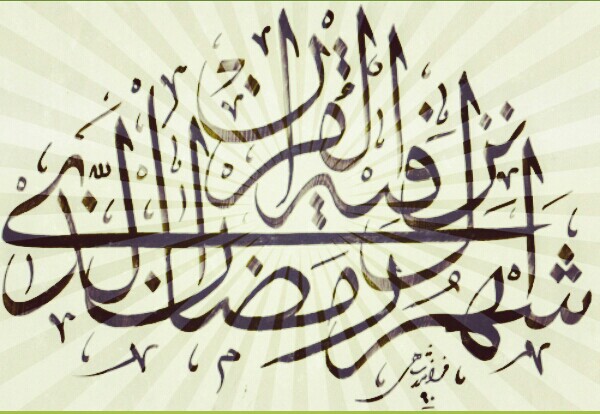 شهر رمضان الذی
انزل فیه القرآن